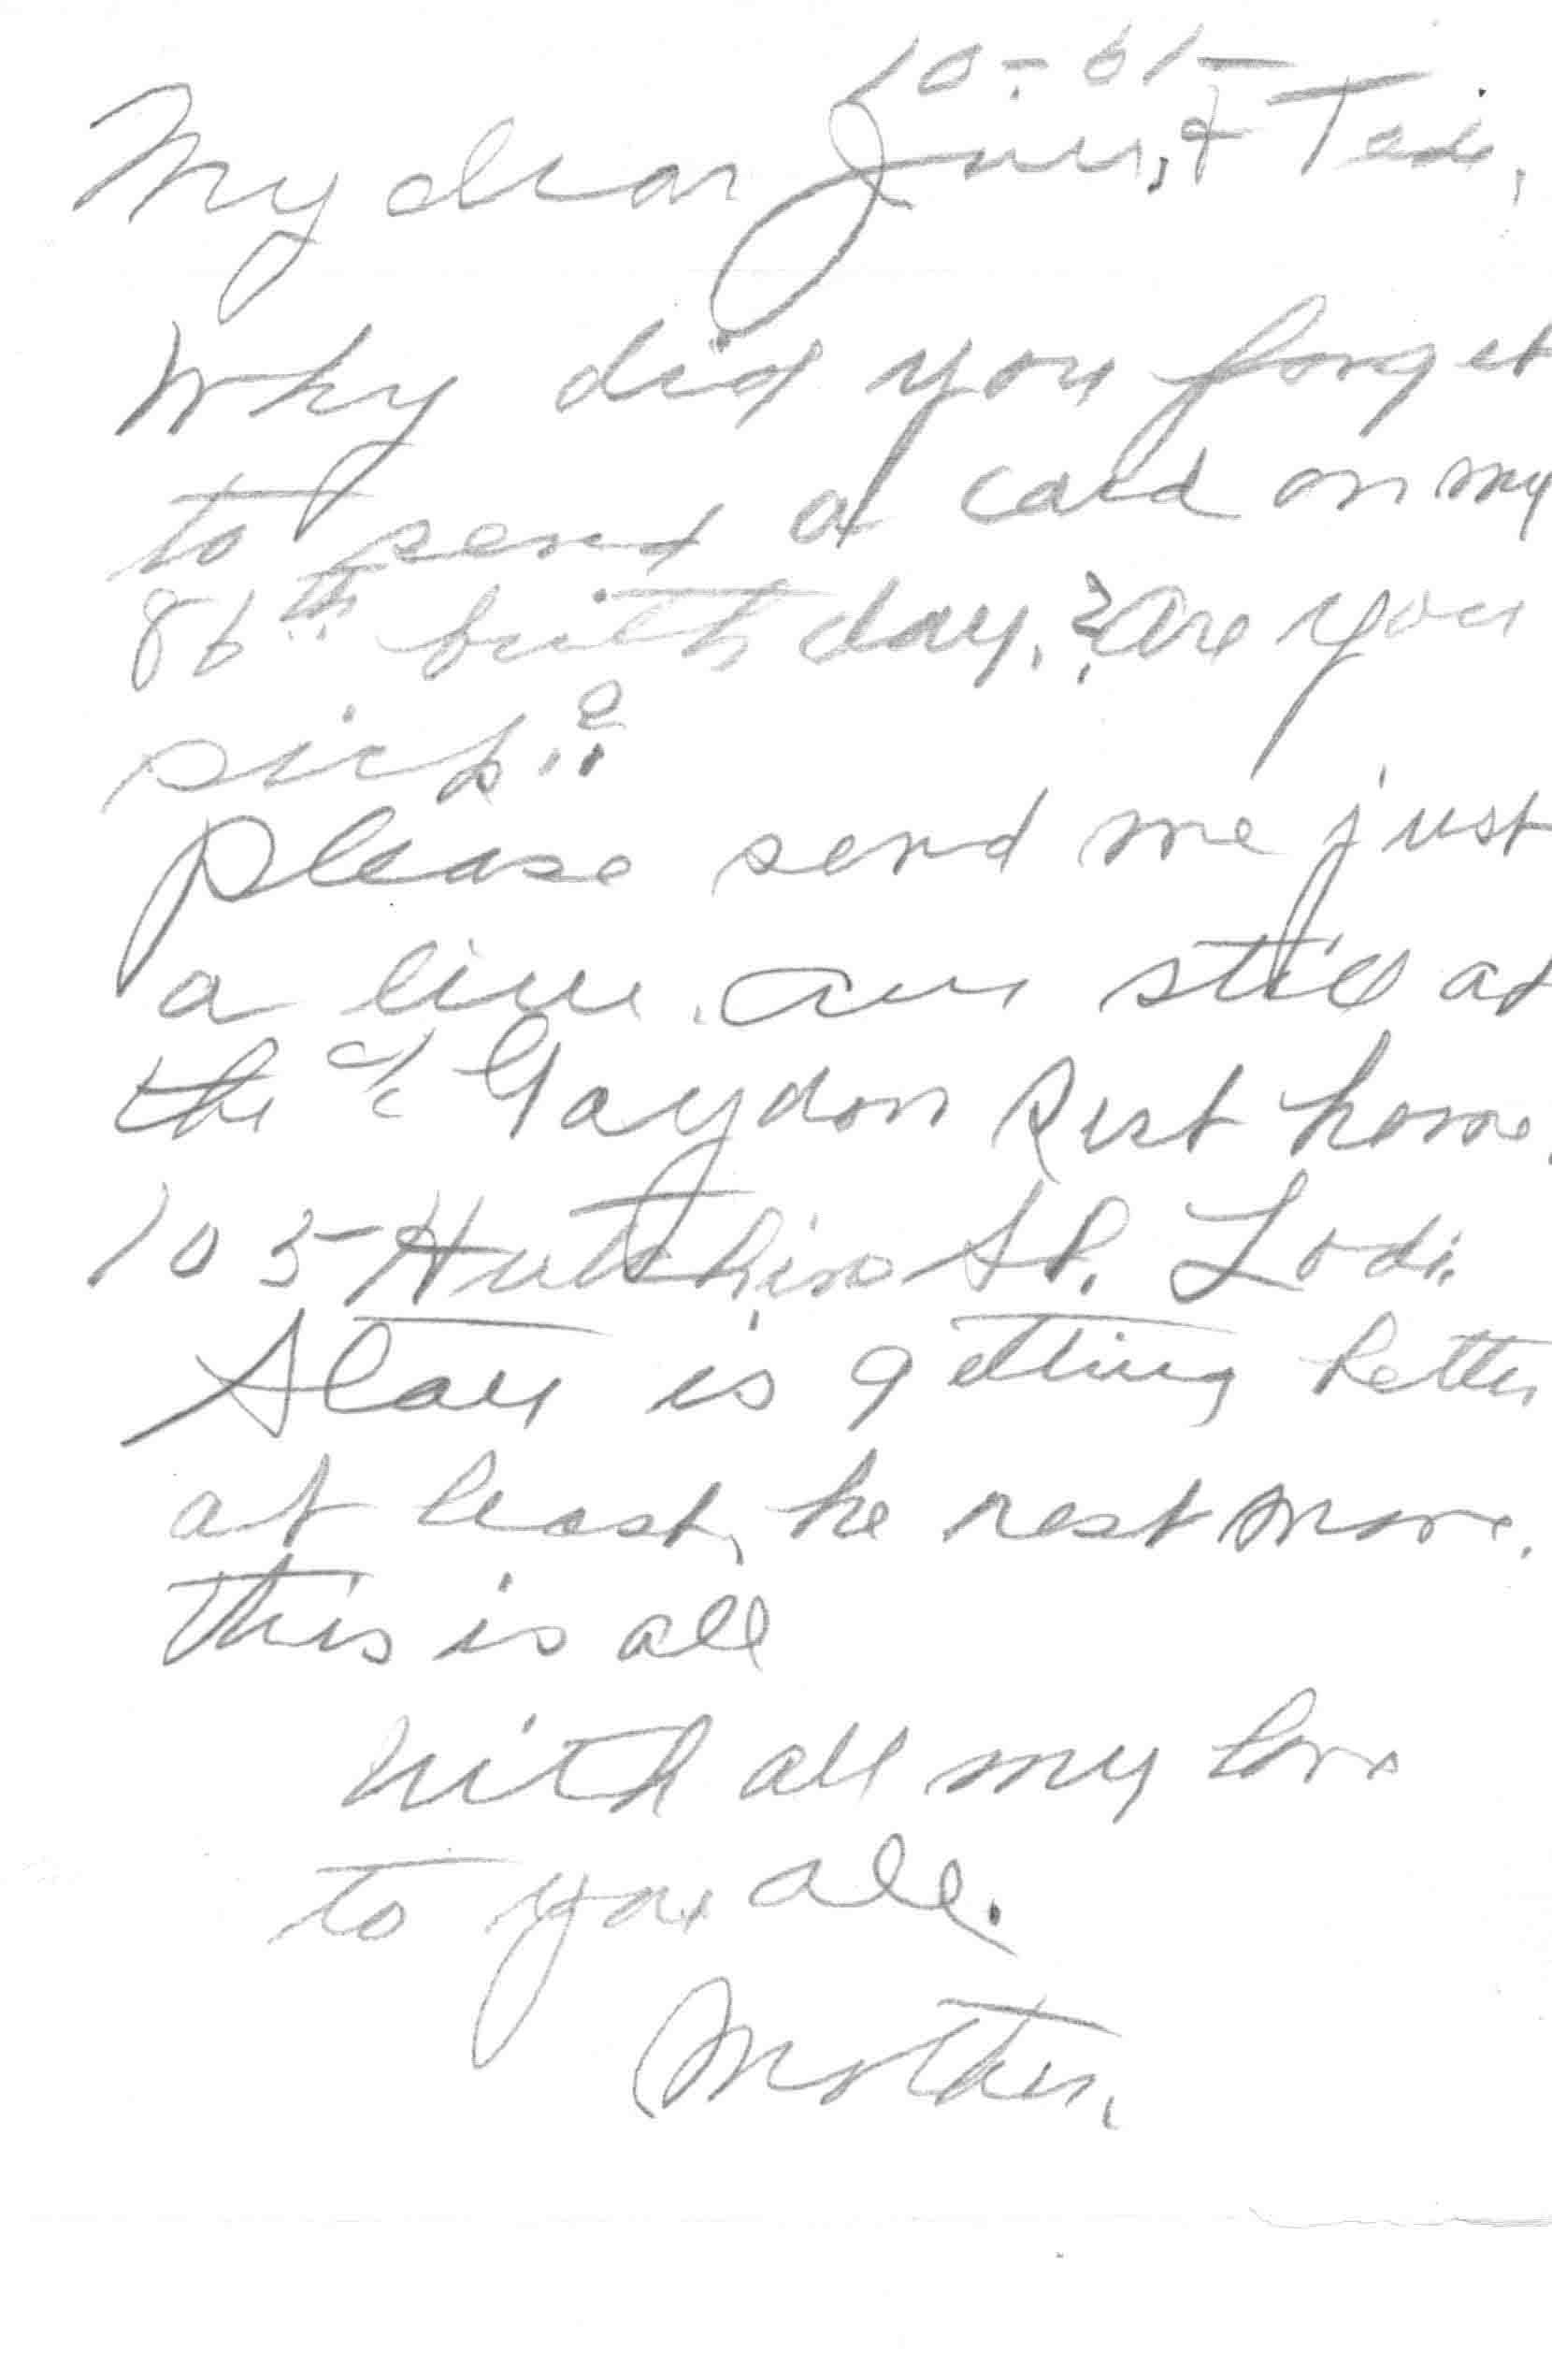 10-61-
My dear June, & Ted,
Why did you forget
to send a card on my
86th birthday.? are you
sick..?
Please send me just
a line. am still at
the c/o Gaydon Rest home.
105 Hutchins St. Lodi.
is getting better
at least, he rest more.
this is all
with all my love
to you all.
Mother.